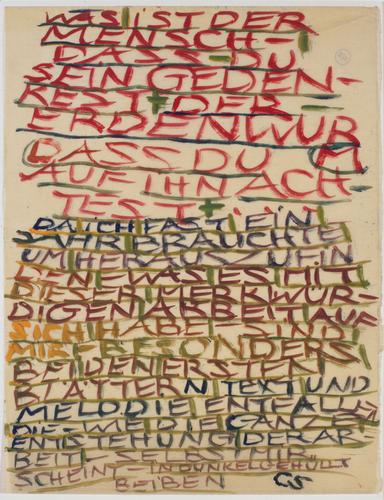 WAS IST DER
MENSCH -
DASS DU
SEIN GEDEN-
KEST + DER
ERDENWUR
DASS DU M
AUF IHN ACH-
TEST +
DA ICH FAST EIN
JAHR BRAUCHTE
UM HERAUSZUFIN
DEN WAS ES MIT
DIESER MERKWÜR-
DIGEN ARBEIT AUF
SICH HABE SIND
MIR BESONDERS
BEI DEN ERSTEN
BLÄTTERN TEXT UND
MELODIE ENTFALLEN
DIE - WIE DIE GANZE
ENTSTEHUNG DER AR-
BEIT - SELBST MIR
SCHEINT - IN DUNKEL GEHÜLLT
BEIBEN CS